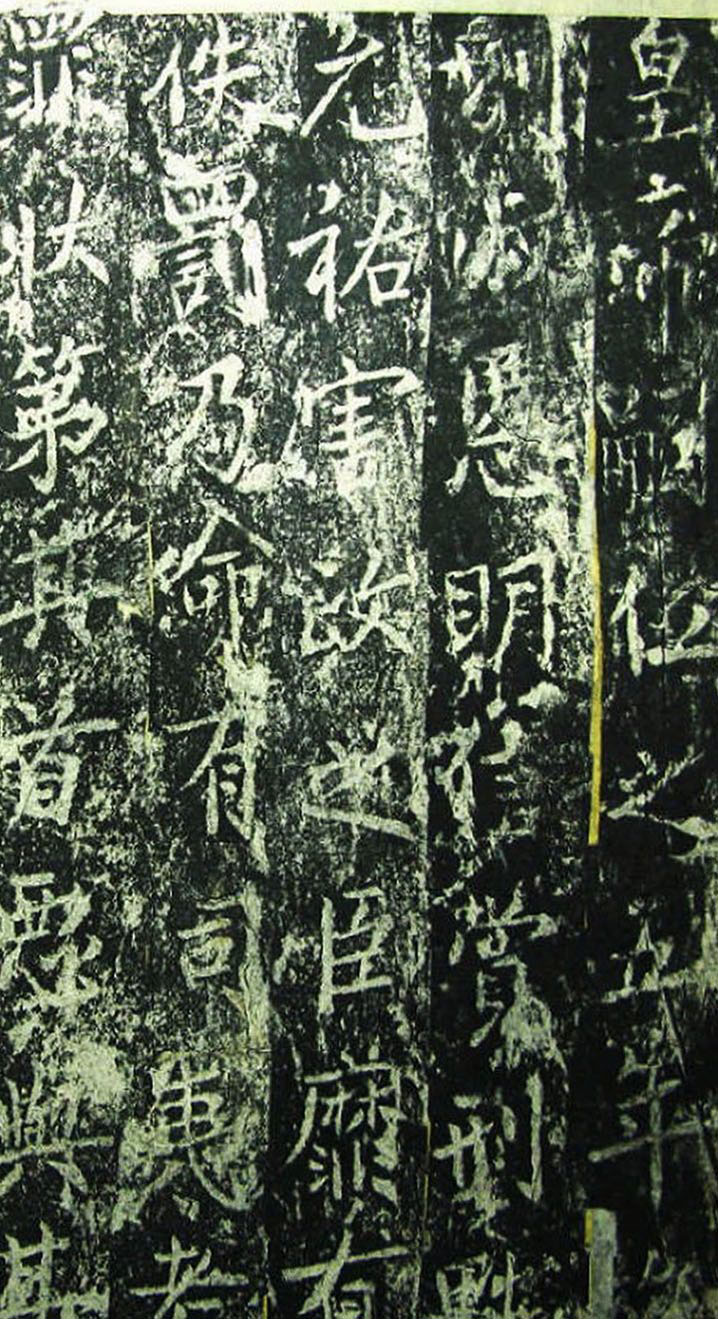 皇帝嗣位之五年
別淑慝明信賞刑黜
元祐害政之臣靡有
佚罰乃命有司夷考
罪狀第其首惡與其